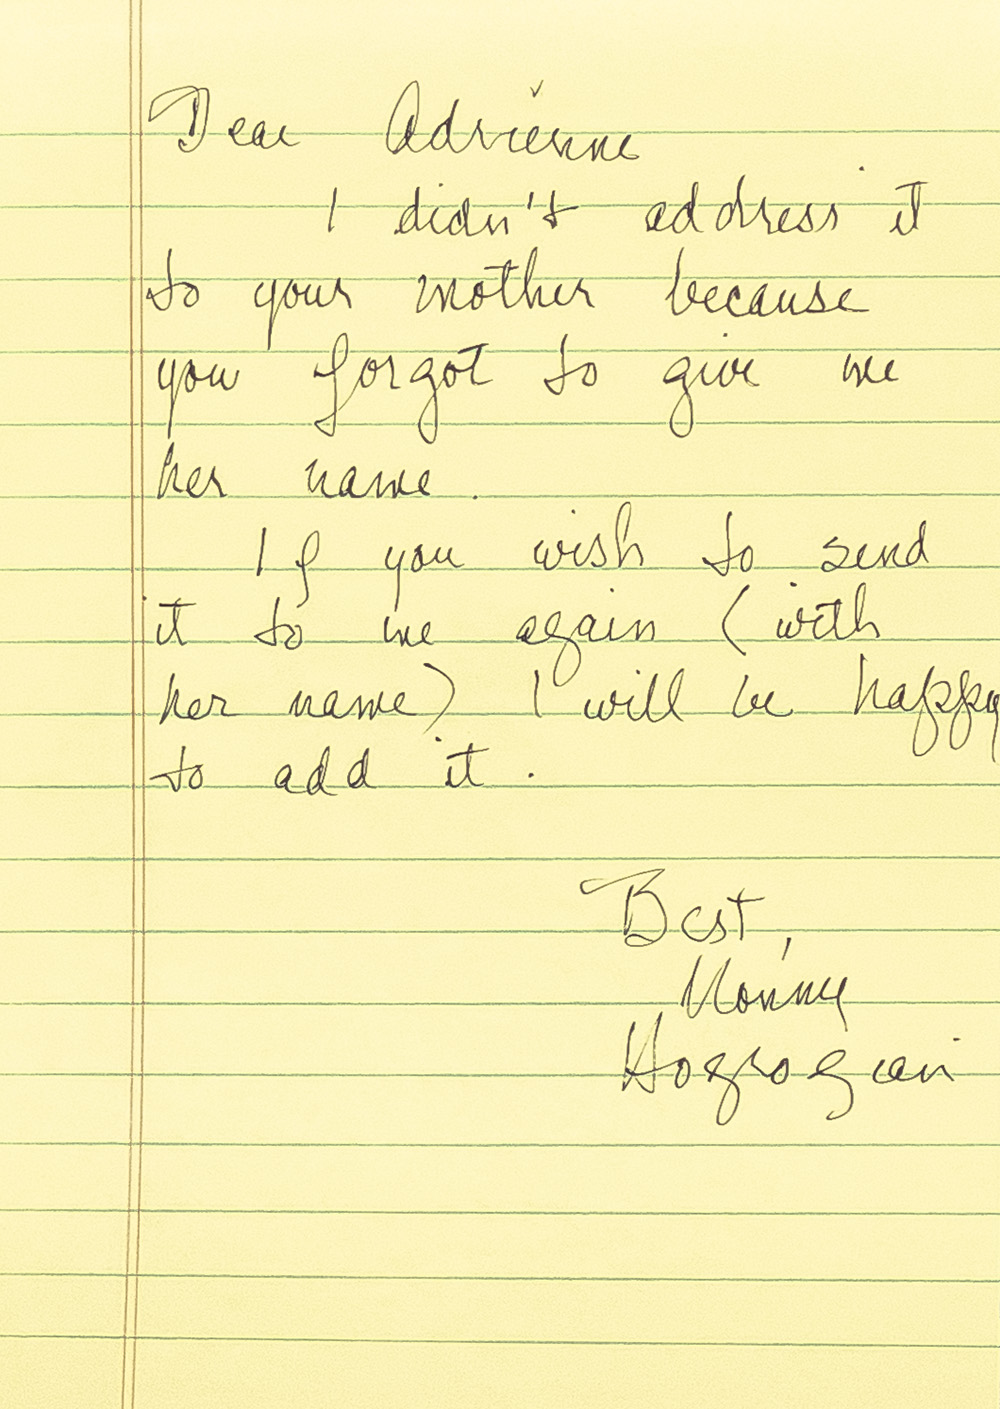 Dear Adrienne
I didn't address it
to your mother because
you forgot to give me
her name.
If you wish to send
it to me again (with
her name) I will be happy
to add it.
Best,
Nonny
Hogrogian